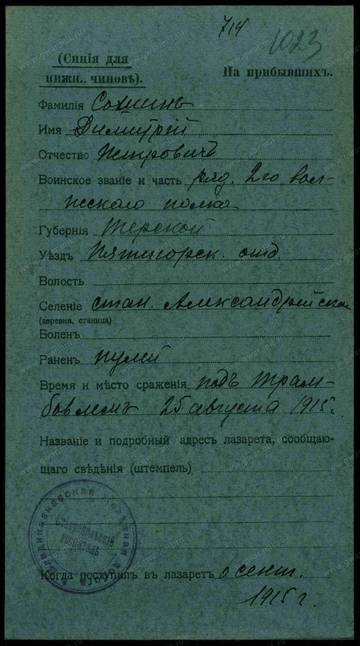 714
1023
(Синія для
нижн. чиновъ).
На прибывшихъ.
Фамилія Сошинъ
Имя Димитрій
Отчество Петровичъ
Воинское званіе и часть ряд. 2го Вол-
жскаго полка
Губернія Терской
Уѣздъ Пятигорск. отд.
Волость
Селеніе стан. Александрійской
(деревня, станица)
Боленъ
Раненъ пулей
Время и мѣсто сраженія подъ Трам-
бовлемъ 25 августа 1915.
Названіе и подробный адресъ лазарета, сообщаю-
щаго свѣдѣнія (штемпель)
Когда поступилъ въ лазаретъ сент.
1915 г.